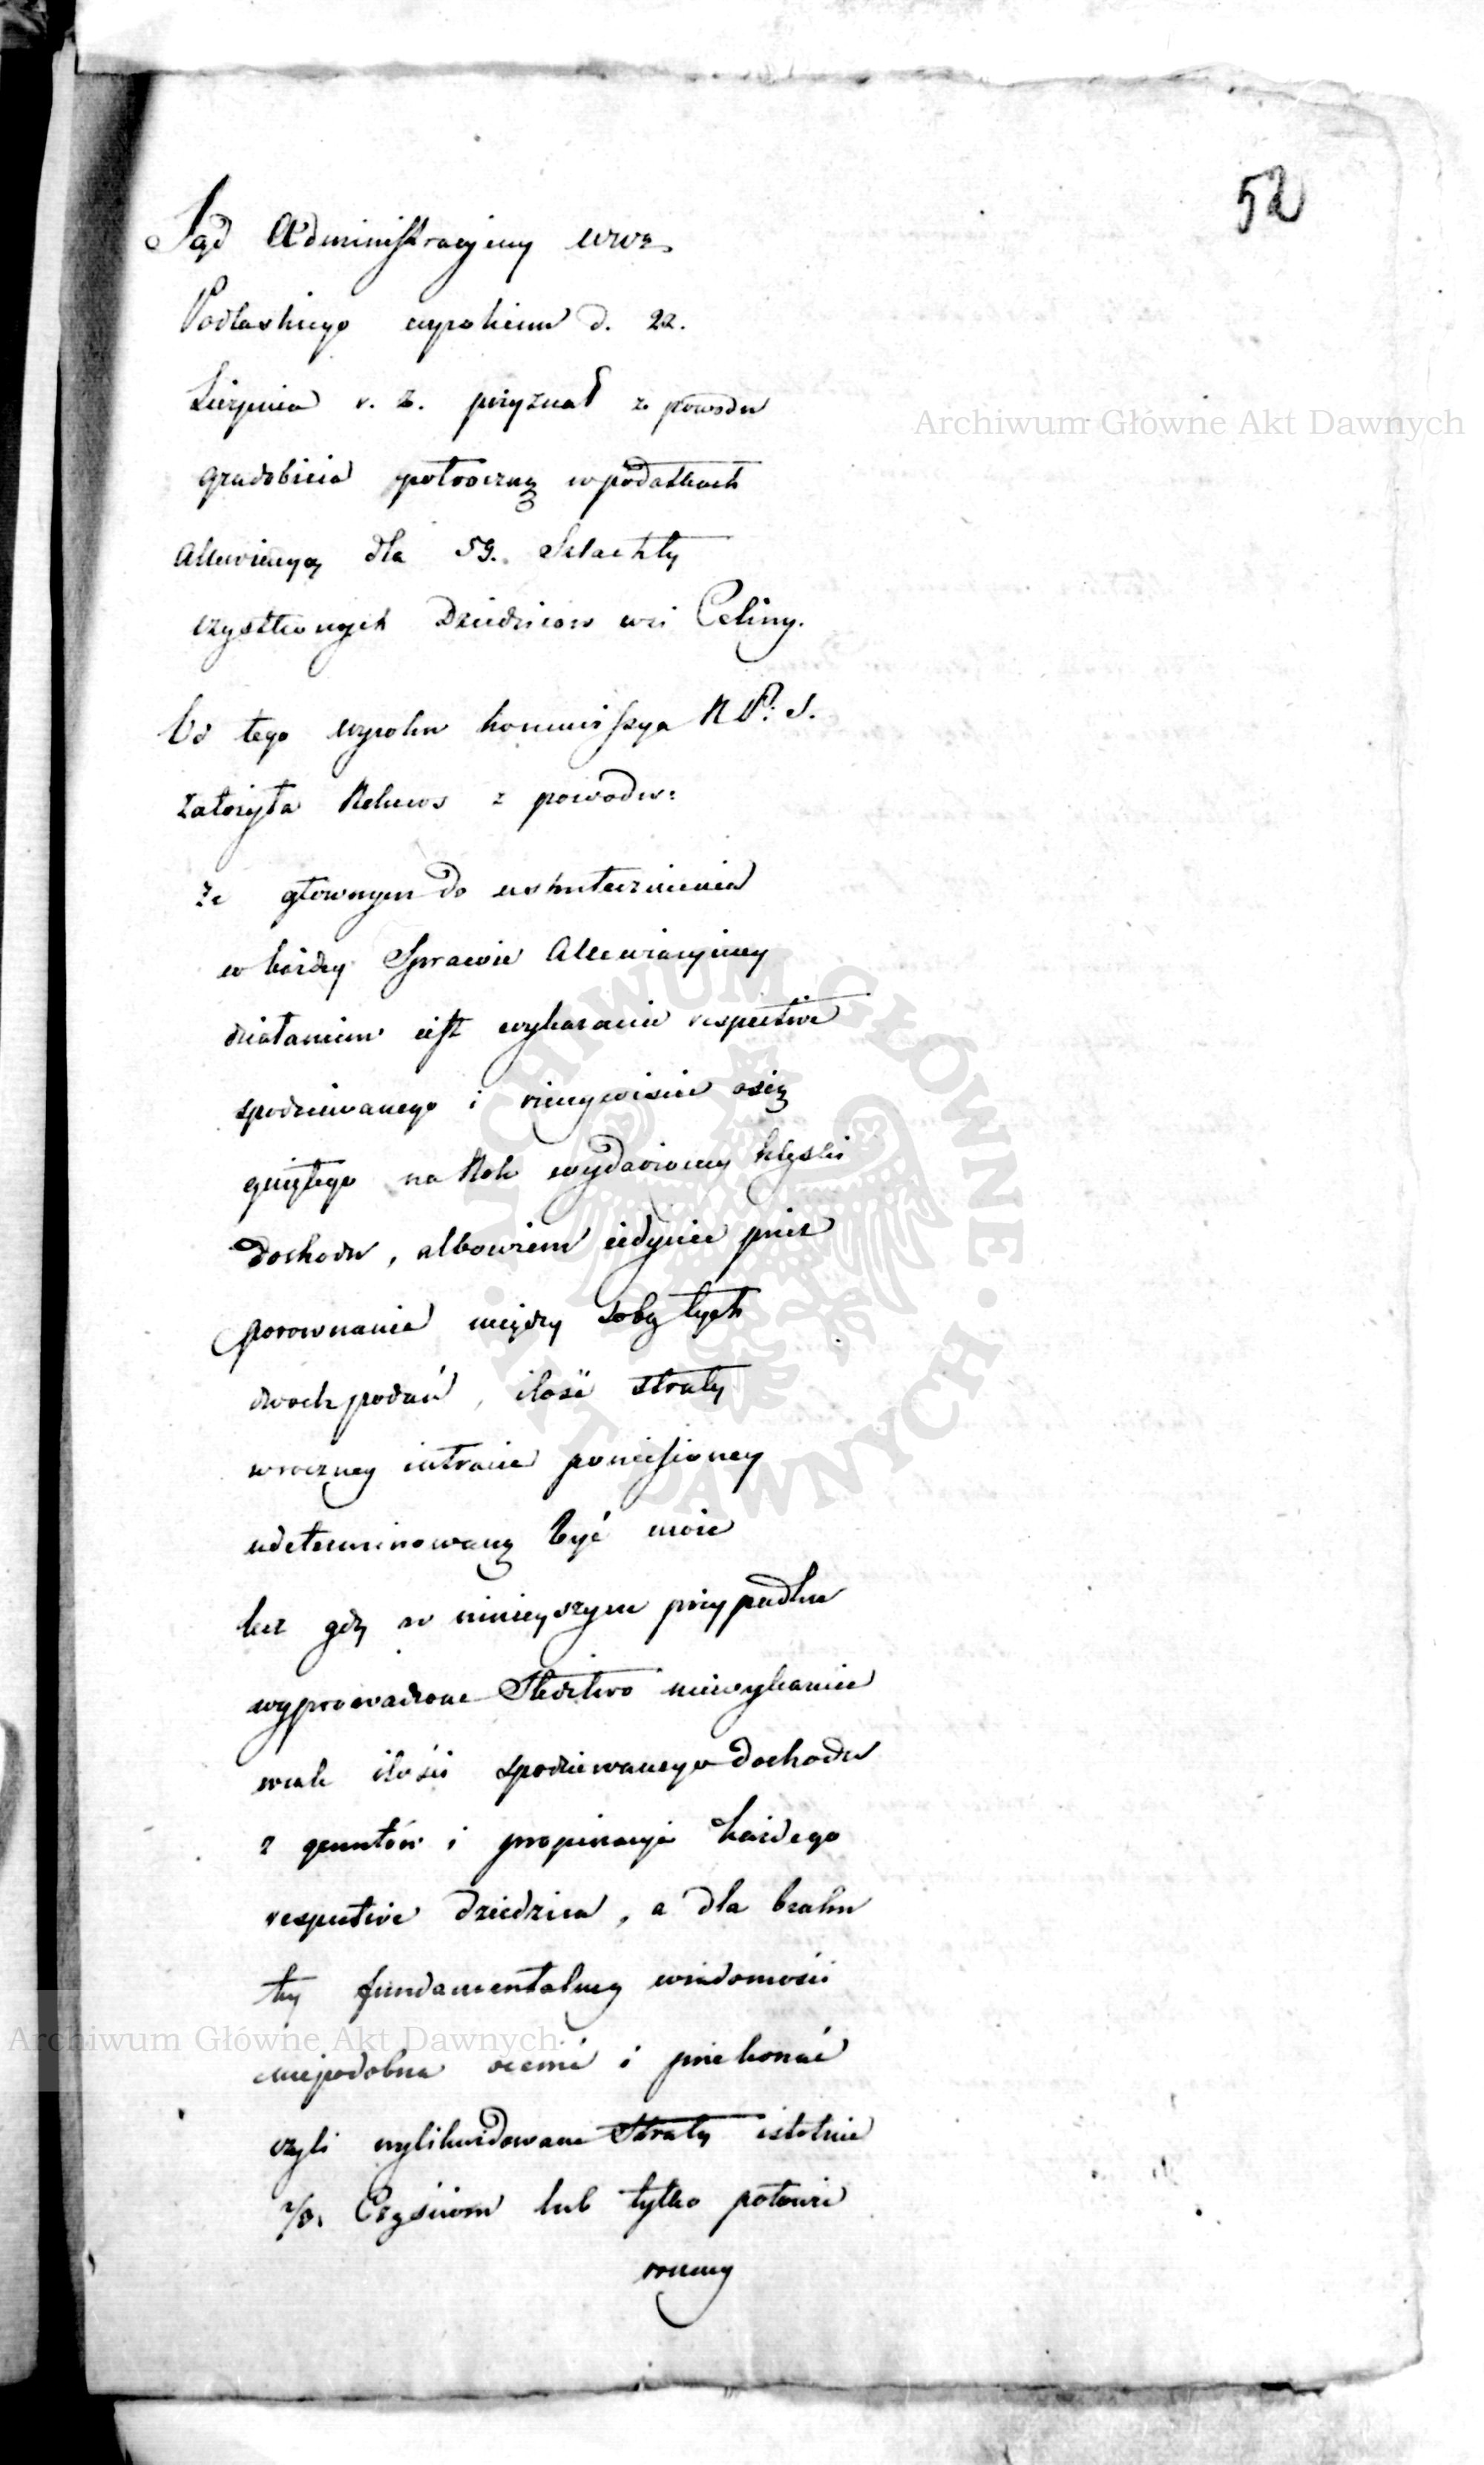 52
Sąd Administracyiny wwz
Podlaskiego wyrokiem d. 22.
Sierpnia r. z. przyznał z powodu
gradobicia połroczną w podatkach
Allewiacyą dla 59. Szlachty
czystkowych Dziedzicow wsi Celiny.
Od tego wyroku kommissya R. P. S.
założyła Rekurs z powodu:
że głownym do uskutecznienia
w każdey Sprawie Allewiacyiney
działaniem iest wykazanie respective
spodziewanego i rzeczywiście osią
gniętego na Rok wydarzoney klęski
dochodu, albowiem iedynie przez
porownanie między sobą tych
dwoch podań, ilość straty
w roczney intracie poniesioney
udeterminowaną być może
lecz gdy w ninieyszym przypadku
wyprowadzone Śledztwo niewykazuie
wcale ilości spodziewanego dochodu
z gruntów i propinacyi każdego
respective dziedzica, a dla braku
tey fundamentalney wiadomości
niepodobna ocenić i przekonać
czyli wylikwidowane Straty istotnie
2/3. Częściom lub tylko połowie
roczney
Archiwum Główne Akt Dawnych
Archiwum Główne Akt Dawnych
ARCHIWUM GŁÓWNE · AKT DAWNYCH ·